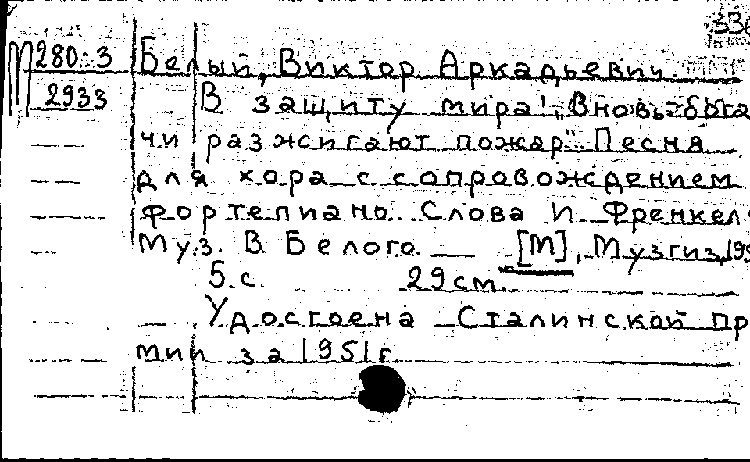 М 280:3 Белый, Виктор Аркадьевич.
2933 В защиту мира! „Вновь бога
чи разжигают пожар". Песня
для хора с сопровождением
фортепиано. Слова И. Френкел
Муз. В. Белого. [М], Музгиз, 195
5 с. 29 см.
Удостоена Сталинской пр
мии за 1951 г.